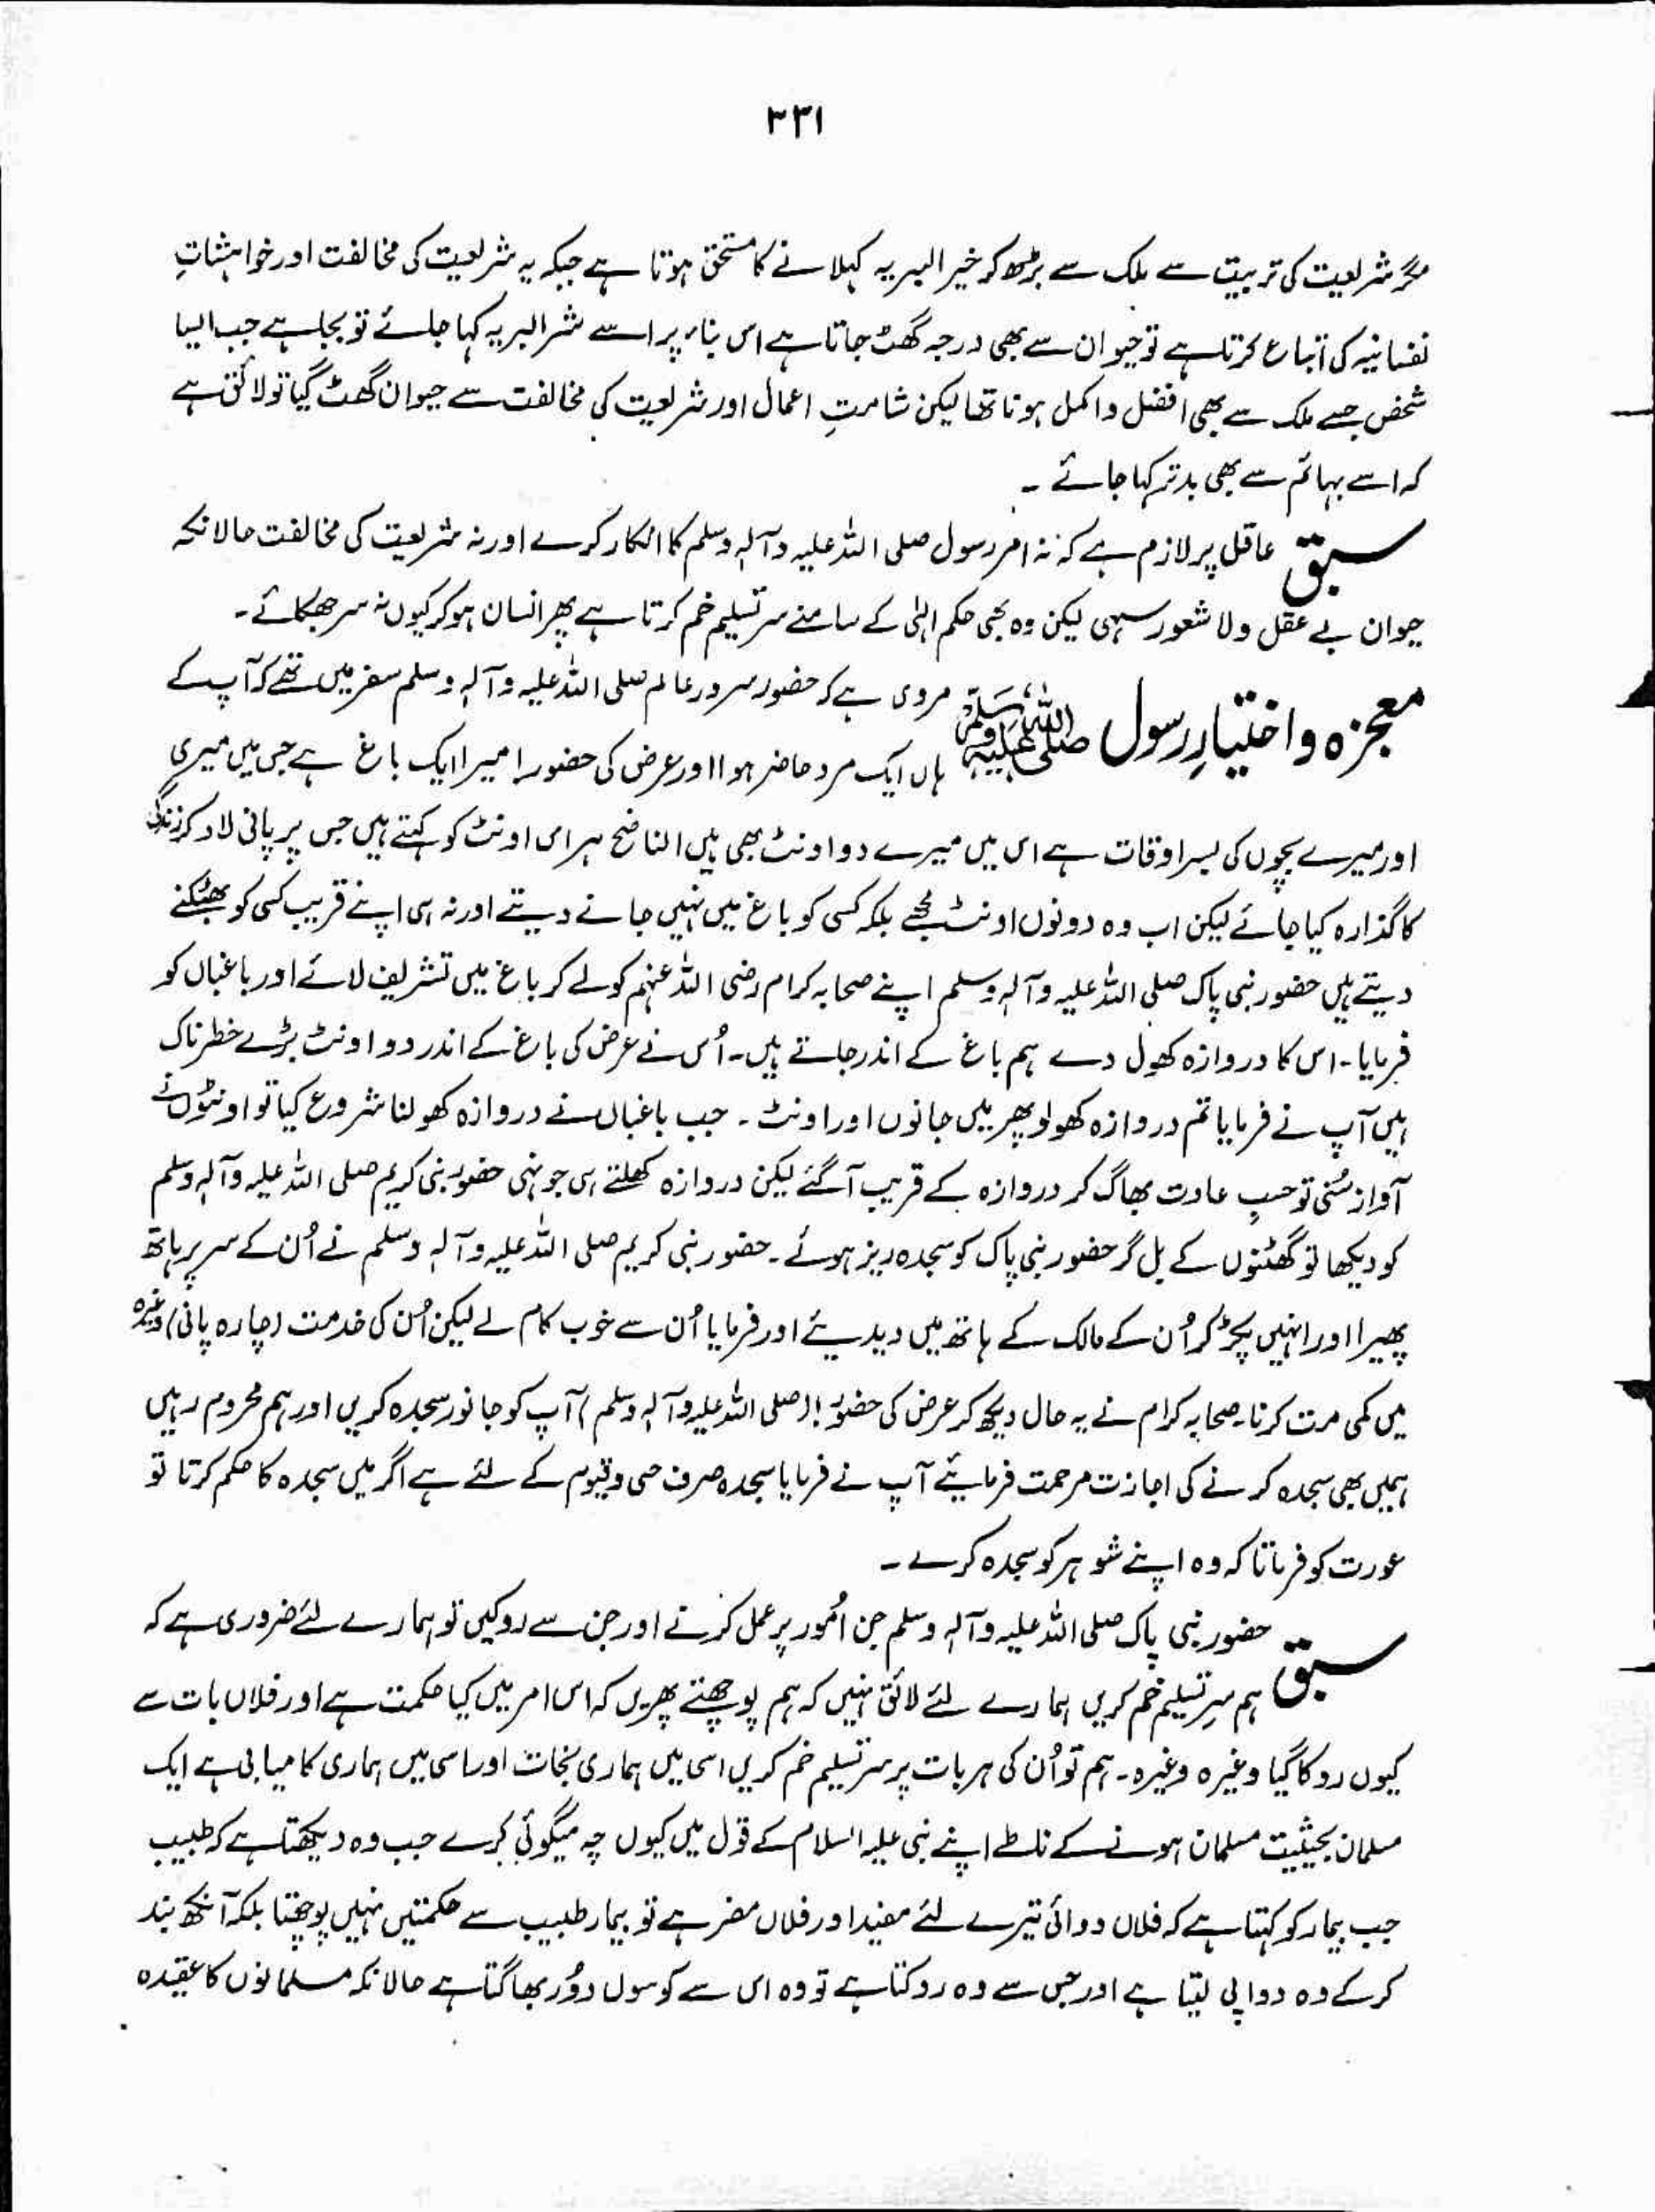 ۳۳۱
مگر شریعت کی تربیت سے ملک سے بڑھ کر خیر البریہ کہلانے کا مستحق ہوتا ہے جبکہ یہ شریعت کی مخالفت اور خواہشاتِ
نفسانیہ کی اتباع کرتا ہے تو حیوان سے بھی درجہ گھٹ جاتا ہے اس بناء پر اسے شر البریہ کہا جائے تو بجا ہے جب ایسا
شخص جسے ملک سے بھی افضل و اکمل ہونا تھا لیکن شامتِ اعمال اور شریعت کی مخالفت سے حیوان گھٹ گیا تو لائق ہے
کہ اسے بہائم سے بھی بدتر کہا جائے ۔
سبق عاقل پر لازم ہے کہ نہ امر رسول صلی اللہ علیہ وآلہٖ وسلم کا انکار کرے اور نہ شریعت کی مخالفت حالانکہ
حیوان بے عقل ولا شعور سہی لیکن وہ بھی حکم الٰہی کے سامنے سر تسلیم خم کرتا ہے پھر انسان ہو کر کیوں نہ سر جھکائے ۔
معجزہ و اختیارِ رسول صلی اللہ علیہ وسلم مروی ہے کہ حضور سرور عالم صلی اللہ علیہ وآلہٖ وسلم سفر میں تھے کہ آپ کے
ہاں ایک مرد حاضر ہوا اور عرض کی حضور! میرا ایک باغ ہے جس میں میری
اور میرے بچوں کی بسر اوقات ہے اس میں میرے دو اونٹ بھی ہیں الناضح ہر اس اونٹ کو کہتے ہیں جس پر پانی لاد کر زندگی
کا گذارہ کیا جائے لیکن اب وہ دونوں اونٹ مجھے بلکہ کسی کو باغ میں نہیں جانے دیتے اور نہ ہی اپنے قریب کسی کو بھٹکنے
دیتے ہیں حضور نبی پاک صلی اللہ علیہ وآلہٖ وسلم اپنے صحابہ کرام رضی اللہ عنہم کو لے کر باغ میں تشریف لائے اور باغباں کو
فرمایا ۔ اس کا دروازہ کھول دے ہم باغ کے اندر جاتے ہیں ۔ اُس نے عرض کی باغ کے اندر دو اونٹ بڑے خطرناک
ہیں آپ نے فرمایا تم دروازہ کھولو پھر میں جانوں اور اونٹ ۔ جب باغباں نے دروازہ کھولنا شروع کیا تو اونٹوں نے
آواز سُنی تو حسبِ عادت بھاگ کر دروازہ کے قریب آ گئے لیکن دروازہ کھلتے ہی جونہی حضور نبی کریم صلی اللہ علیہ وآلہٖ وسلم
کو دیکھا تو گھٹنوں کے بل گر حضور نبی پاک کو سجدہ ریز ہوئے ۔ حضور نبی کریم صلی اللہ علیہ وآلہٖ وسلم نے اُن کے سر پر ہاتھ
پھیرا اور انہیں پکڑ کر اُن کے مالک کے ہاتھ میں دیدیئے اور فرمایا اُن سے خوب کام لے لیکن اُن کی خدمت (چارہ پانی) وغیرہ
میں کمی مت کرنا ۔ صحابہ کرام نے یہ حال دیکھ کر عرض کی حضور! (صلی اللہ علیہ وآلہٖ وسلم) آپ کو جانور سجدہ کریں اور ہم محروم رہیں
ہمیں بھی سجدہ کرنے کی اجازت مرحمت فرمایئے آپ نے فرمایا سجدہ صرف حی و قیوم کے لئے ہے اگر میں سجدہ کا حکم کرتا تو
عورت کو فرماتا کہ وہ اپنے شوہر کو سجدہ کرے ۔
سبق حضور نبی پاک صلی اللہ علیہ وآلہٖ وسلم جن اُمور پر عمل کرنے اور جن سے روکیں تو ہمارے لئے ضروری ہے کہ
ہم سرِ تسلیم خم کریں ہمارے لئے لائق نہیں کہ ہم پوچھتے پھریں کہ اس امر میں کیا حکمت ہے اور فلاں بات سے
کیوں روکا گیا وغیرہ وغیرہ ۔ ہم تو اُن کی ہر بات پر سر تسلیم خم کریں اسی میں ہماری نجات اور اسی میں ہماری کامیابی ہے ایک
مسلمان بحیثیت مسلمان ہونے کے ناطے اپنے نبی علیہ السلام کے قول میں کیوں چہ میگوئی کرے جب وہ دیکھتا ہے کہ طبیب
جب بیمار کو کہتا ہے کہ فلاں دوائی تیرے لئے مفید اور فلاں مضر ہے تو بیمار طبیب سے حکمتیں نہیں پوچھتا بلکہ آنکھ بند
کر کے وہ دوا پی لیتا ہے اور جس سے وہ روکتا ہے تو وہ اس سے کوسوں دُور بھاگتا ہے حالانکہ مسلمانوں کا عقیدہ